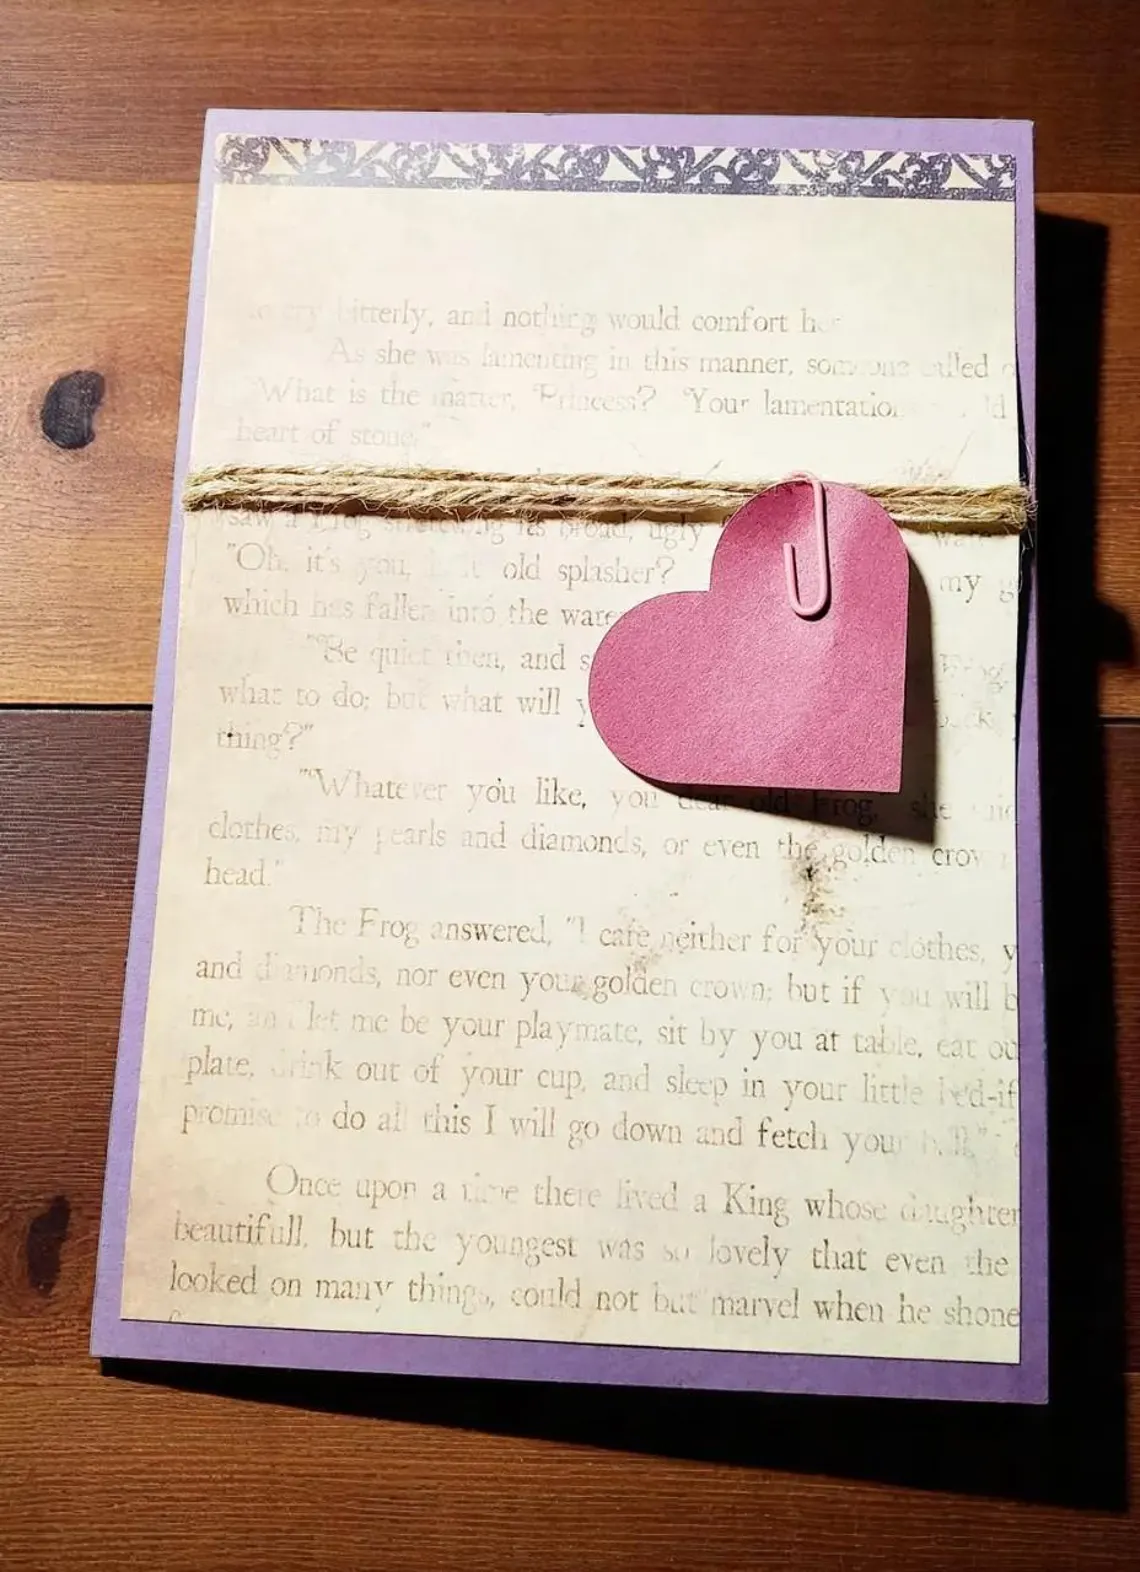 to cry bitterly, and nothing would comfort her
As she was lamenting in this manner, someone called
"What is the matter, Princess? Your lamentation
heart of stone."
saw a Frog stretching its broad, ugly
"Oh, it's you, old splasher? my
which has fallen into the water
"Be quiet then, and Frog,
what to do; but what will back
thing?"
"Whatever you like, you dear old Frog," she
clothes, my pearls and diamonds, or even the golden crown
head."
The Frog answered, "I care neither for your clothes,
and diamonds, nor even your golden crown; but if you will
me, and let me be your playmate, sit by you at table, eat
plate, drink out of your cup, and sleep in your little bed-if
promise to do all this I will go down and fetch your ball,"
Once upon a time there lived a King whose daughter
beautifull, but the youngest was so lovely that even the
looked on many things, could not but marvel when he shone